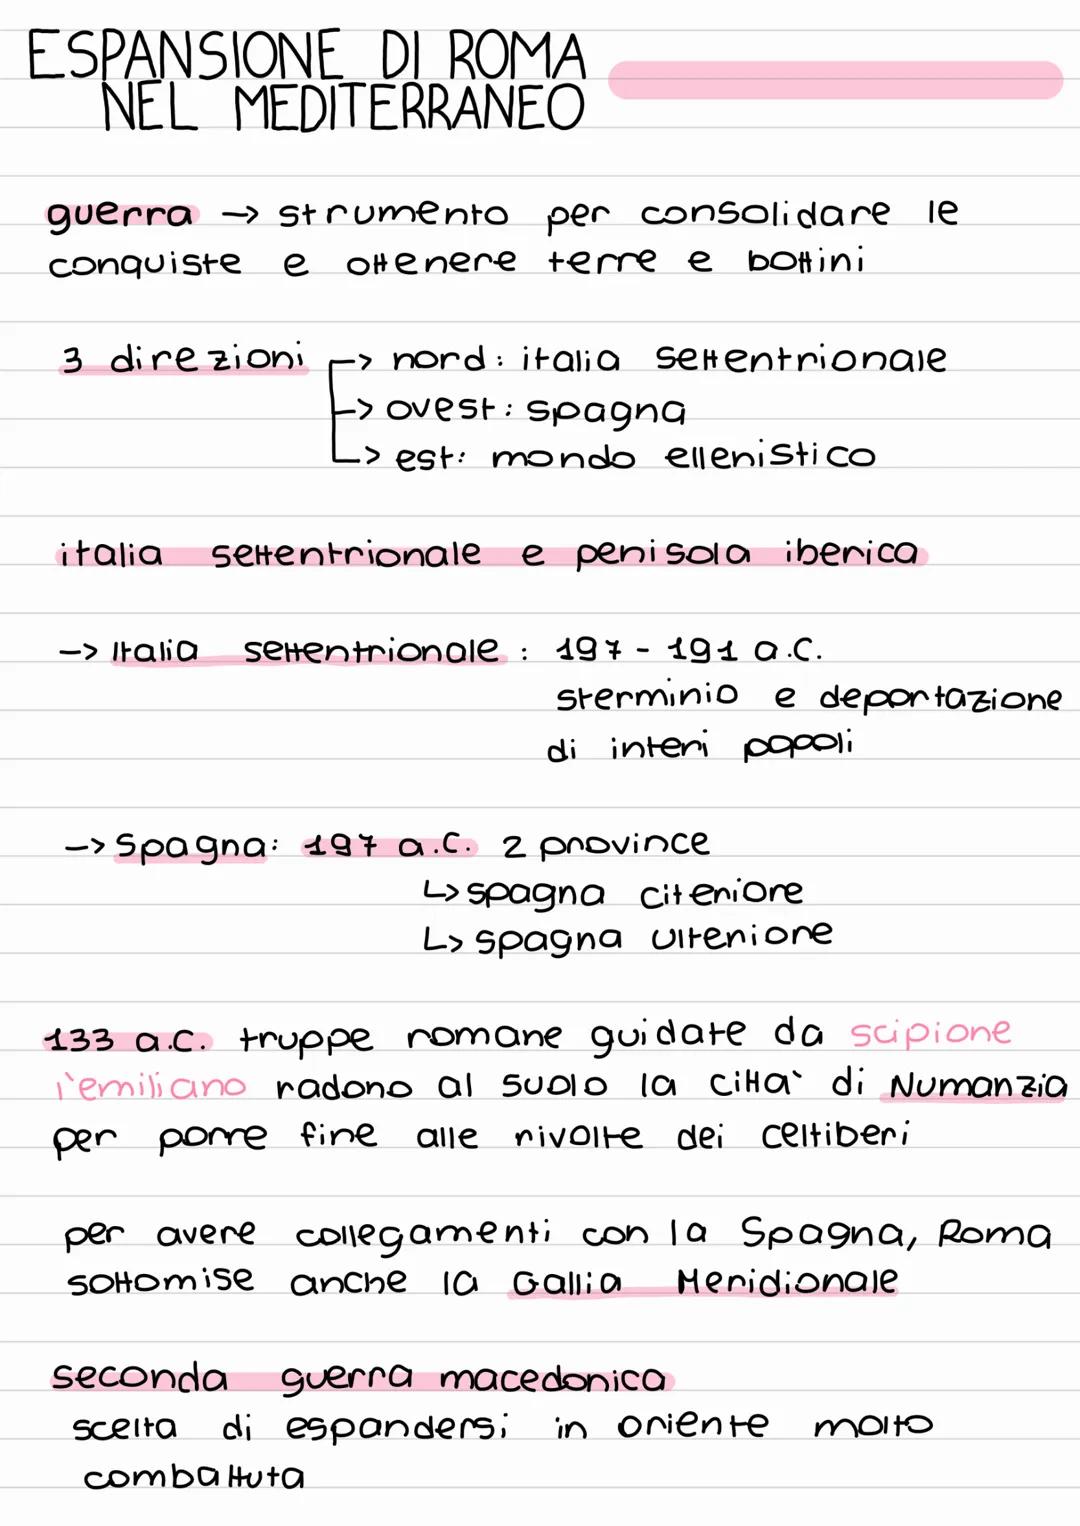 ESPANSIONE DI ROMA
NEL MEDITERRANEO
guerra -> strumento per consolidare le
conquiste e ottenere terre e bottini
3 direzioni -> nord: italia settentrionale
-> ovest: spagna
-> est: mondo ellenistico
italia settentrionale e penisola iberica
-> Italia settentrionale: 197 - 191 a.C.
sterminio e deportazione
di interi popoli
-> Spagna: 197 a.C. 2 province
↳ spagna citeriore
↳ spagna ulteriore
133 a.C. truppe romane guidate da scipione
l'emiliano radono al suolo la città di Numanzia
per porre fine alle rivolte dei celtiberi
per avere collegamenti con la Spagna, Roma
sottomise anche la Gallia Meridionale
seconda guerra macedonica
scelta di espandersi in oriente molto
combattuta